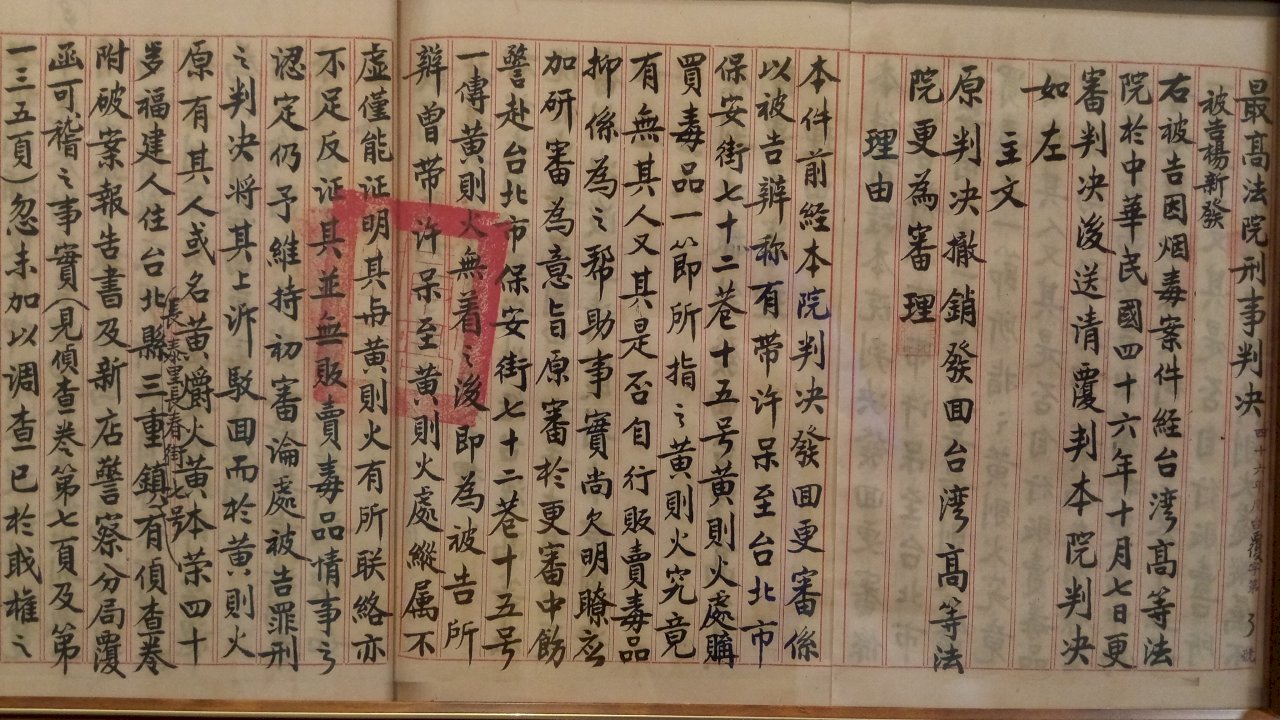 最高法院刑事判决
被告楊新發
右被告因烟毒案件经台湾高等法
院於中華民國四十六年十月七日更
審判决後送清覆判本院判决
如左
主文
原判决撤銷發回台湾高等法
院更為審理
理由
本件前经本院判决發回更審係
以被告辯称有带许呆至台北市
保安街七十二巷十五号黄則火處購
買毒品一節所指之黄則火究竟
有無其人又其是否自行販賣毒品
抑係為之帮助事實尚欠明瞭应
加研審為意旨原審於更審中飭
警赴台北市保安街七十二巷十五号
一傳黄則火無着之後即為被告所
辯曾带许呆至黄則火處縱属不
虚僅能证明其与黄則火有所联絡亦
不足反证其並無販賣毒品情事之
認定仍予維持初審論處被告罪刑
之判决将其上诉駁回而於黄則火
原有其人或名黄爵火黄本荣四十
岁福建人住台北縣三重鎮有偵查卷
長泰里長春街七号
附破案報告書及新店警察分局覆
函可稽之事實(見偵查卷第七頁及第
一三五頁)忽未加以调查已於職權之